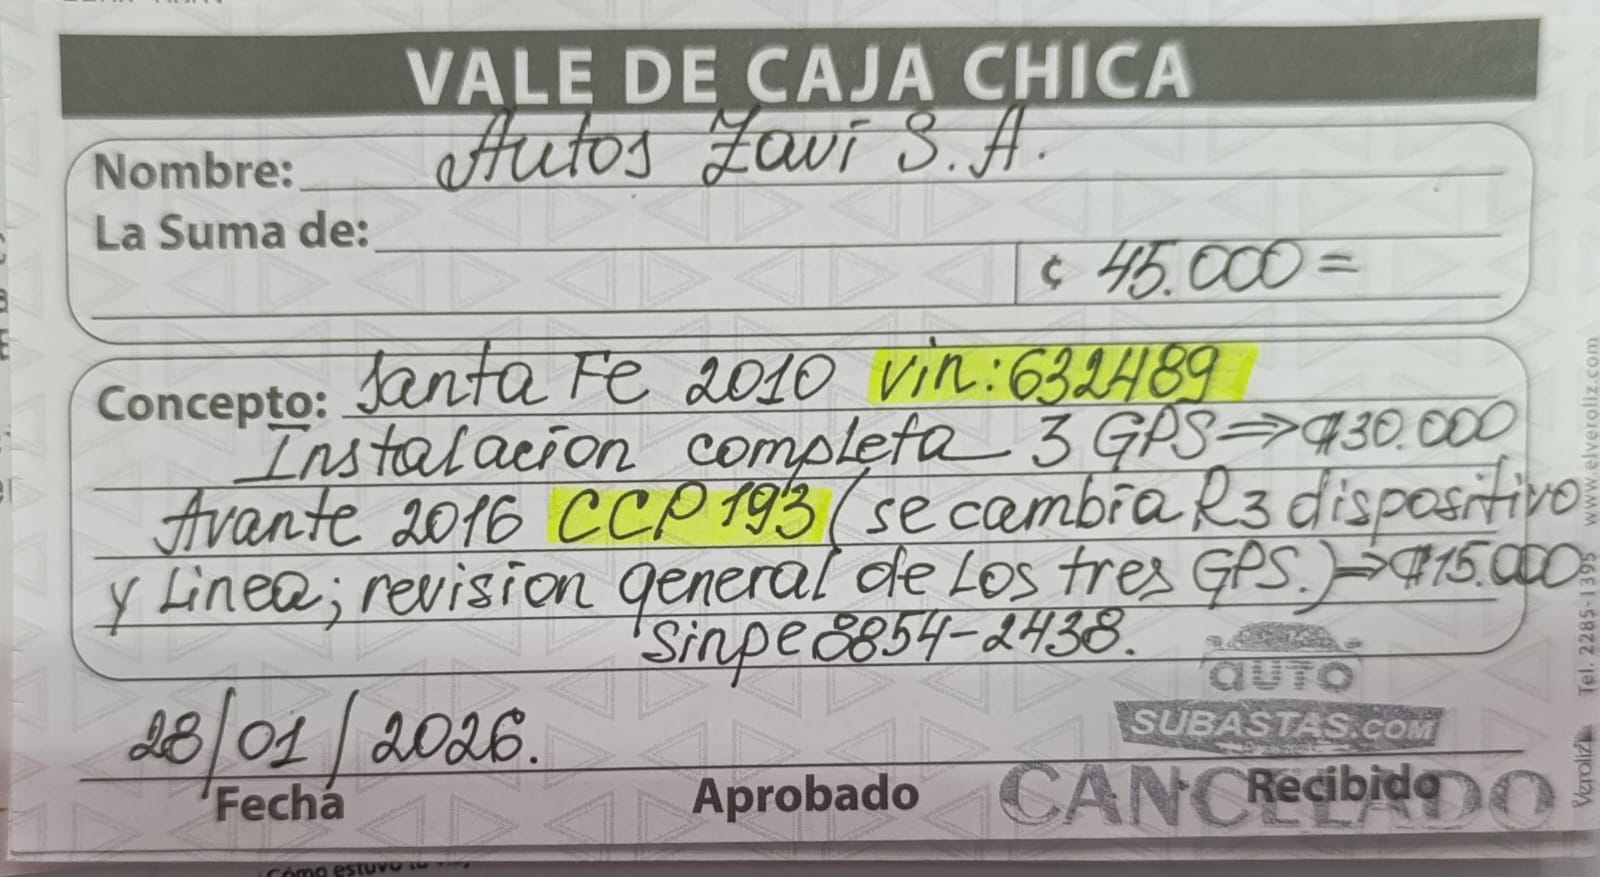 VALE DE CAJA CHICA
Nombre: Autos Zavi S.A.
La Suma de:
¢ 45.000=
Concepto: Santa Fe 2010 vin:632489
Instalacion completa 3 GPS⇒₡30.000
Avante 2016 CCP193 (se cambia R3 dispositivo
y Linea; revision general de Los tres GPS.)⇒₡15.000
Sinpe 8854-2438.
AUTO
SUBASTAS.COM
28/01/2026.
Fecha
Aprobado
Recibido
CANCELADO
Veroliz Tel. 2285-1395 www.elveroliz.com
¿Cómo estuvo